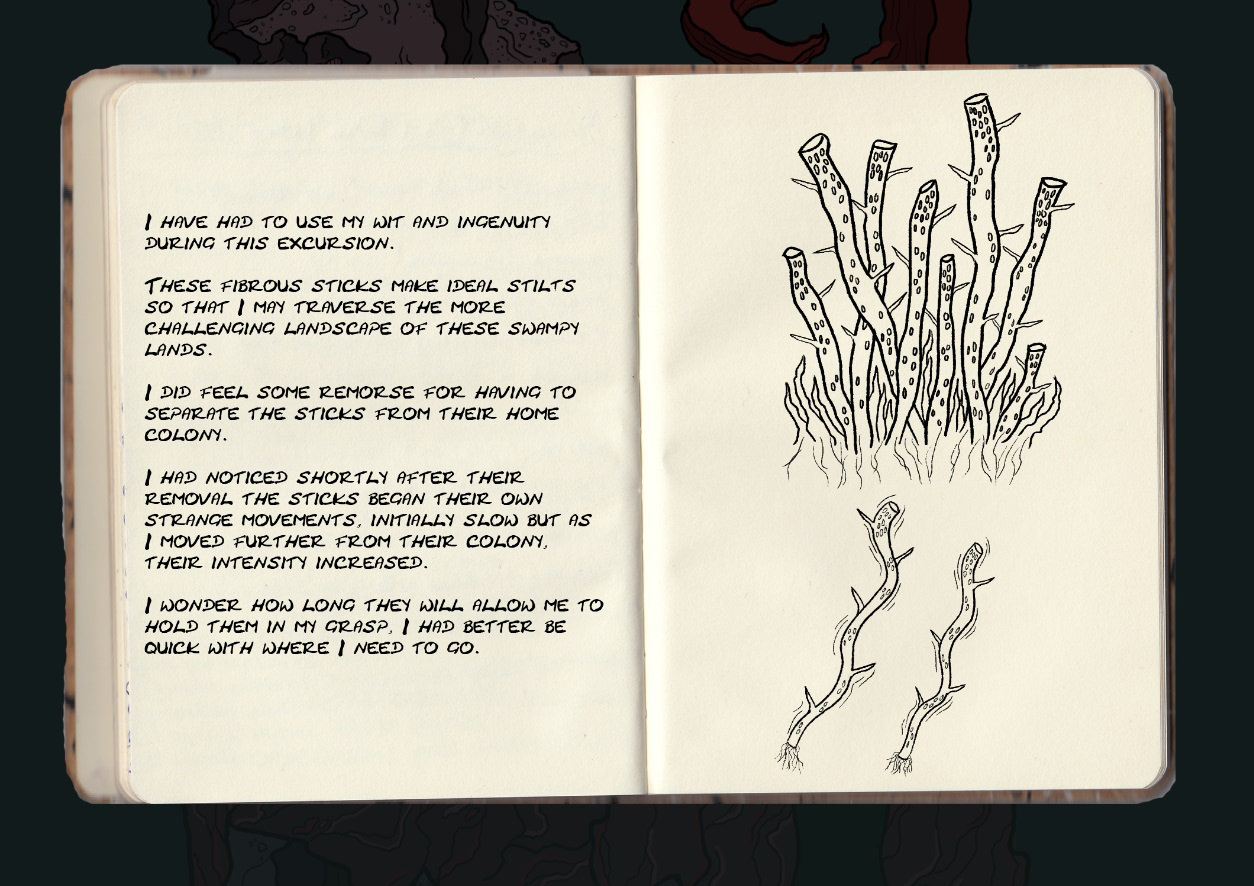 I HAVE HAD TO USE MY WIT AND INGENUITY
DURING THIS EXCURSION.
THESE FIBROUS STICKS MAKE IDEAL STILTS
SO THAT I MAY TRAVERSE THE MORE
CHALLENGING LANDSCAPE OF THESE SWAMPY
LANDS.
I DID FEEL SOME REMORSE FOR HAVING TO
SEPARATE THE STICKS FROM THEIR HOME
COLONY.
I HAD NOTICED SHORTLY AFTER THEIR
REMOVAL THE STICKS BEGAN THEIR OWN
STRANGE MOVEMENTS, INITIALLY SLOW BUT AS
I MOVED FURTHER FROM THEIR COLONY,
THEIR INTENSITY INCREASED.
I WONDER HOW LONG THEY WILL ALLOW ME TO
HOLD THEM IN MY GRASP, I HAD BETTER BE
QUICK WITH WHERE I NEED TO GO.